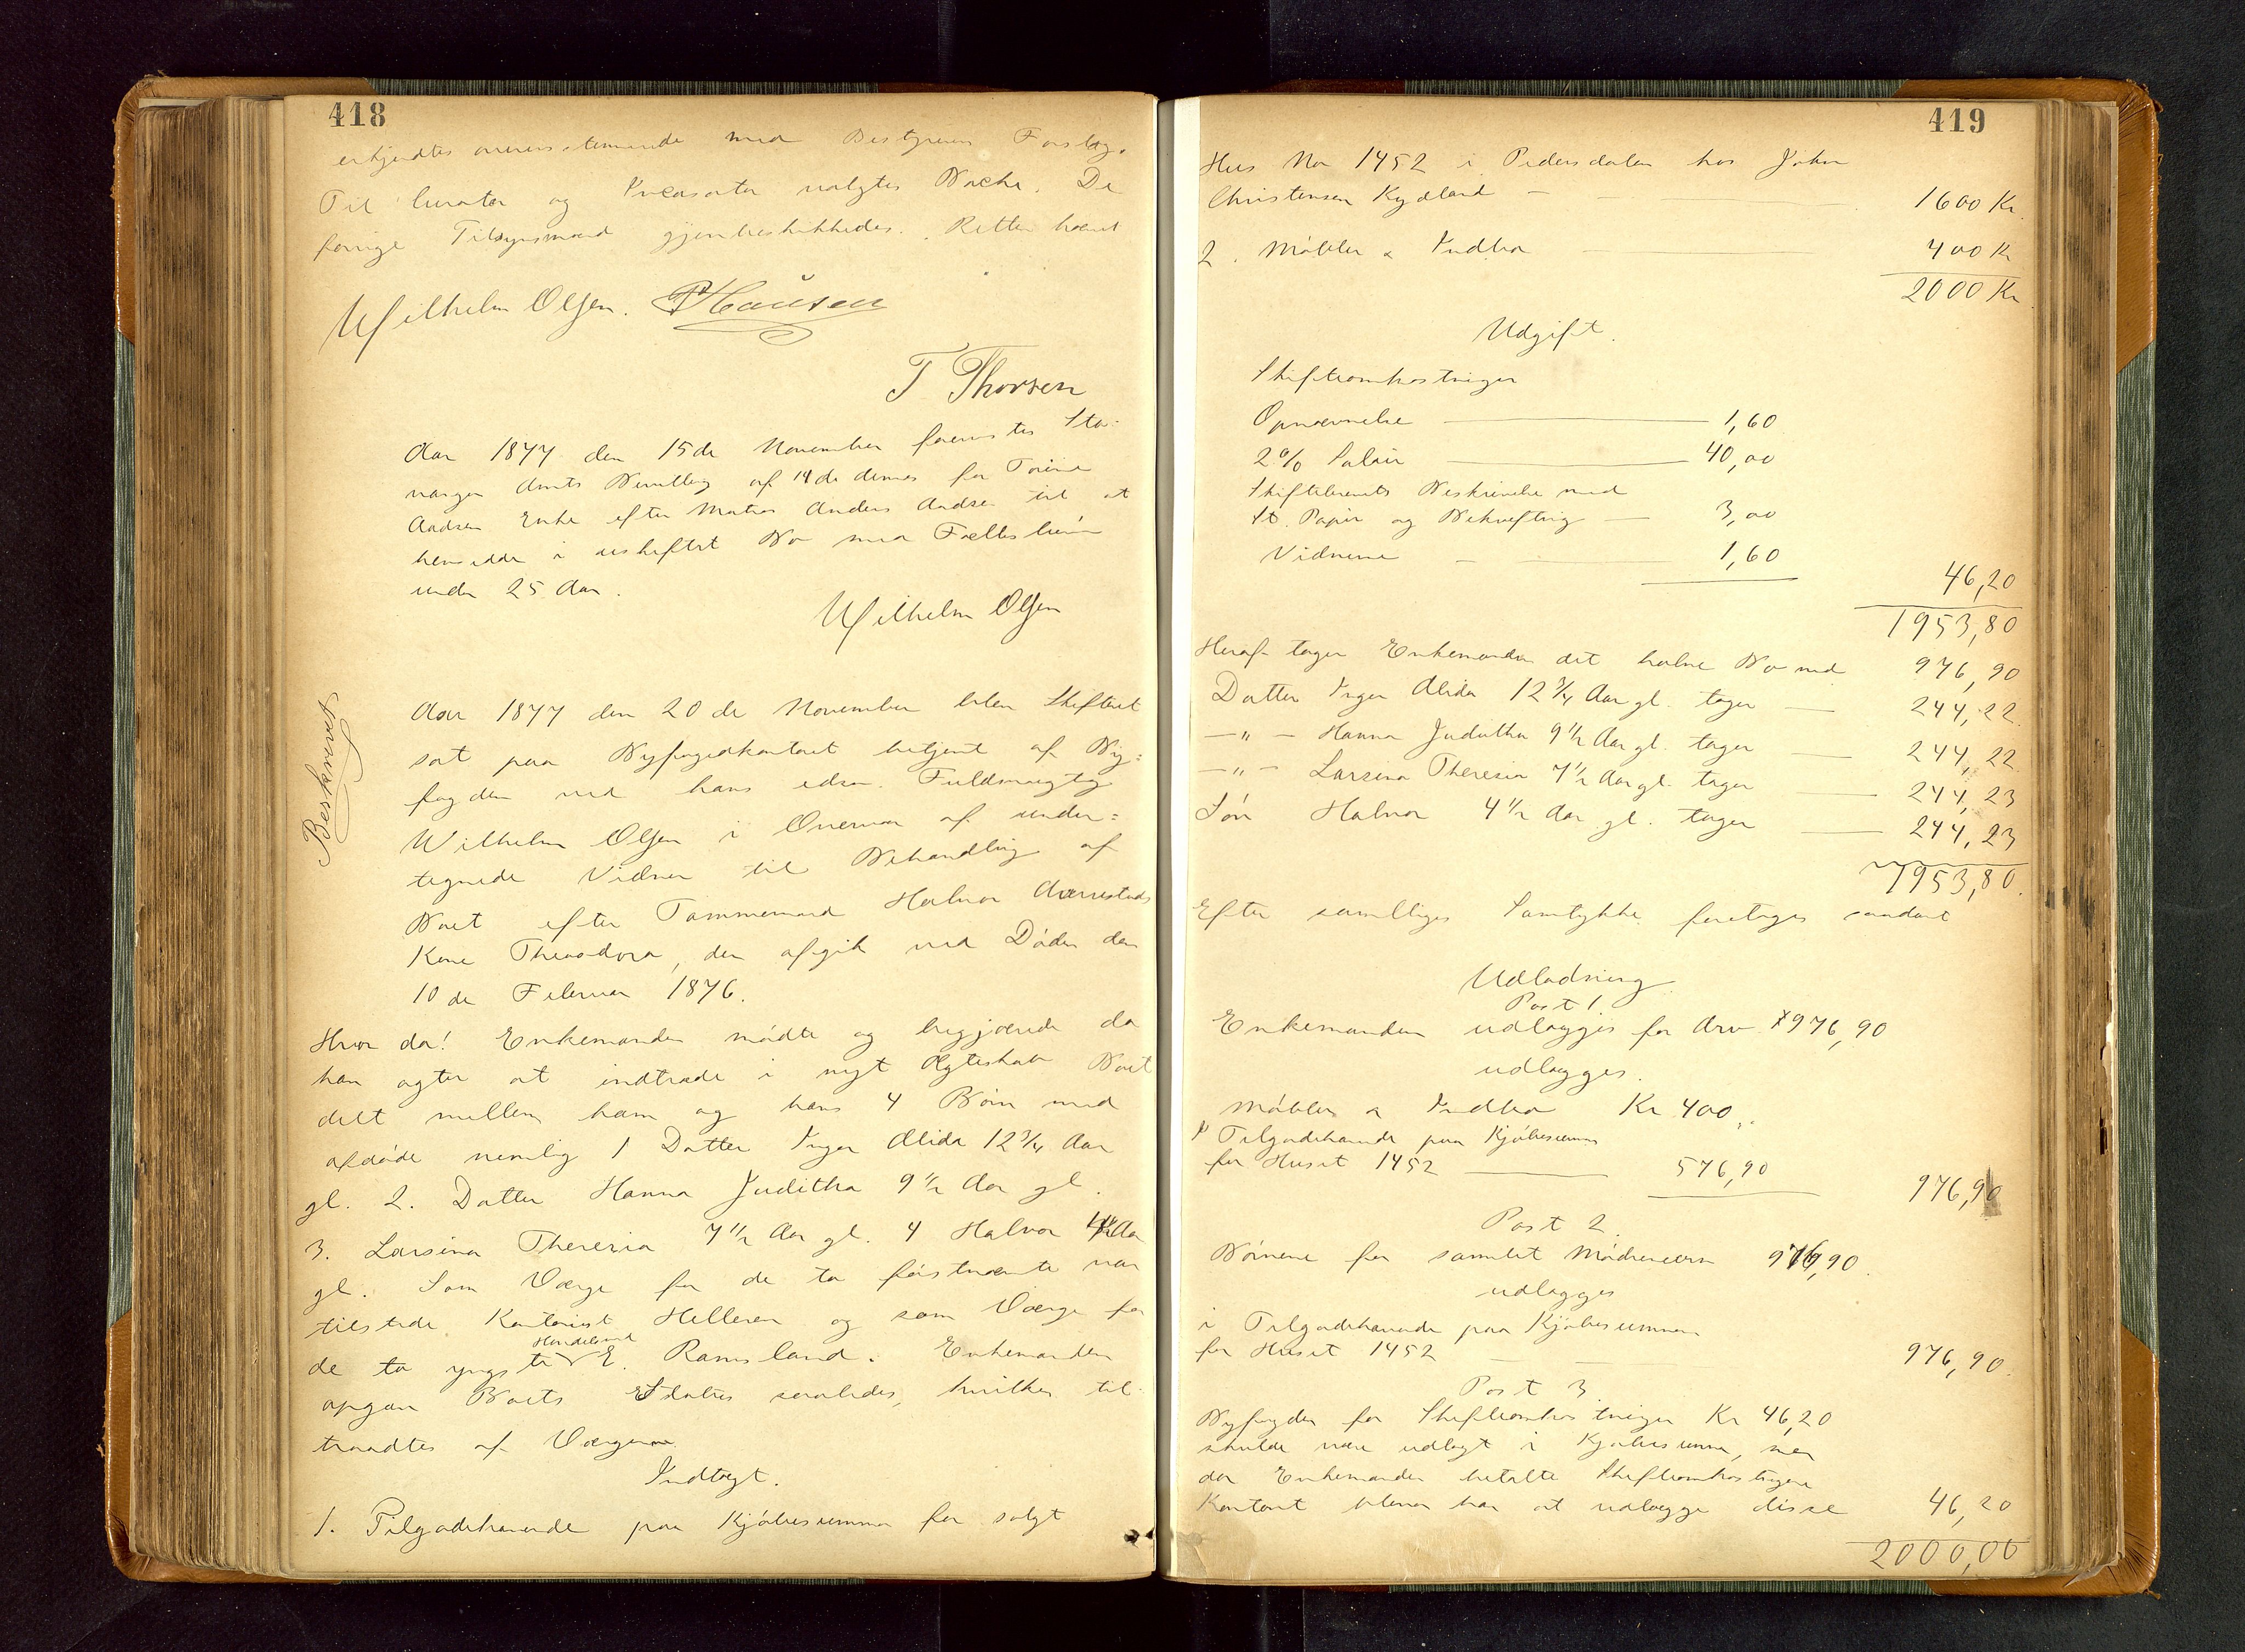 418
erkjendtes overensstemmende med Bestyrens Forslag.
Til Curator og Incasator valgtes Bache. De
forrige Tilsynsmænd gjenbeskikkedes. Retten hævet
Wilhelm Olsen. P Hansen
T Thorsen
Aar 1877 den 15de November forevistes Sta-
vanger Amts Bevilling af 14de dennes for Torine
Aadsen Enke efter Matros Anders Aadsen til at
hensidde i uskiftet Bo med Fællesbørn
under 25 Aar.
Wilhelm Olsen
Beskrevet
Aar 1877 den 20de November blev Skifteret
sat paa Byfogedkontoret betjent af By-
fogden ved hans edsv. Fuldmægtig
Wilhelm Olsen i Overvær af under-
tegnede Vidner til Behandling af
Boet efter Tømmermand Halvor Aarrestads
Kone Theodora, der afgik ved Døden den
10de Februar 1876.
Hvor da! Enkemanden mødte og begjærede da
han agter at indtræde i nyt Ægteskab Boet
delt mellem ham og hans 4 Børn med
afdøde nemlig 1 Datter Inger Alida 12 3/4 Aar
gl. 2. Datter Hanna Juditha 9 1/2 Aar gl.
3. Larsina Theresia 7 1/2 Aar gl. 4 Halvor 4 1/2 Aar
gl. Som Værge for de to førstnævnte var
tilstede Kontorist Helleren og som Værge for
de to yngste Handelsmd E. Ramsland. Enkemanden
opgav Boets Status saaledes, hvilket til-
traadtes af Værgerne
Indtægt.
1. Tilgodehavende paa Kjøbesummen for solgt
419
Hus No 1452 i Pedersdalen hos John
Christensen Kydland — 1600 Kr.
2. Møbler & Indbo — 400 Kr
2000 Kr
Udgift.
Skifteomkostninger
Opnævnelse — 1,60
2% Salair — 40,00
Skiftebrevets Beskrivelse med
St. Papir og Bekræftig — 3,00
Vidnerne — 1,60
46,20
1953,80
Heraf tager Enkemanden det halve Bo med 976,90
Datter Inger Alida 12 3/4 Aar gl. tager — 244,22.
— " — Hanna Juditha 9 1/2 Aar gl. tager — 244,22
— " — Larsina Theresia 7 1/2 Aar gl. tager — 244,23
Søn Halvor 4 1/2 Aar gl. tager — 244,23
1953,80.
Efter samtliges Samtykke foretoges saadant
Udlodning.
Post 1.
Enkemanden udlægges for Arv 976,90
udlægges.
Møbler & Indbo Kr 400,
i Tilgodehavende paa Kjøbesumm
for Huset 1452 — 576,90
976,90
Post 2.
Børnene for samlet Mødrenearv 976,90.
udlægges
i Tilgodehavende paa Kjøbesummen
for Huset 1452 — 976,90.
Post 3.
Byfogden for Skifteomkostninger Kr 46,20
skulde være udlagt i Kjøbesumm, men
da Enkemanden betalte Skifteomkostningerne
Kontant bliver ham at udlægge disse 46,20
2000,00